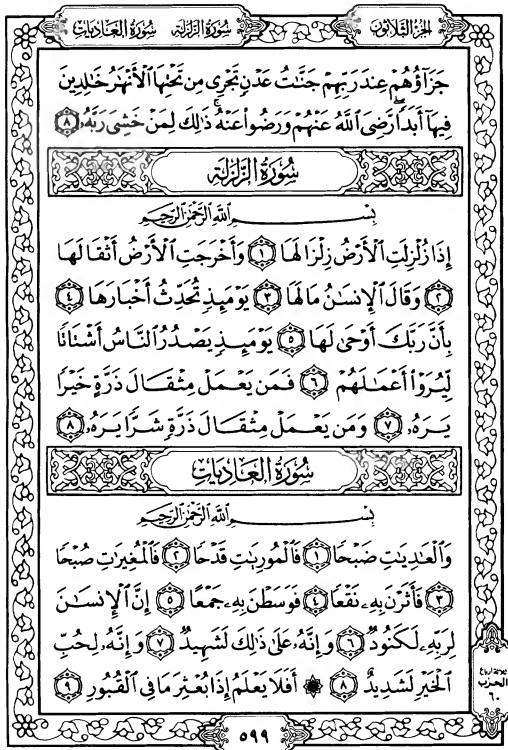 سُورَةُ العَادِيَات سُورَةُ الزَّلْزَلَة الجُزءُ الثَّلاثُون
جَزَآؤُهُمْ عِندَ رَبِّهِمْ جَنَّٰتُ عَدْنٍ تَجْرِى مِن تَحْتِهَا ٱلْأَنْهَٰرُ خَٰلِدِينَ
فِيهَآ أَبَدًا رَّضِىَ ٱللَّهُ عَنْهُمْ وَرَضُوا۟ عَنْهُ ذَٰلِكَ لِمَنْ خَشِىَ رَبَّهُۥ ٨
سُورَةُ الزَّلْزَلَة
بِسْمِ ٱللَّهِ ٱلرَّحْمَٰنِ ٱلرَّحِيمِ
إِذَا زُلْزِلَتِ ٱلْأَرْضُ زِلْزَالَهَا ١ وَأَخْرَجَتِ ٱلْأَرْضُ أَثْقَالَهَا
٢ وَقَالَ ٱلْإِنسَٰنُ مَا لَهَا ٣ يَوْمَئِذٍ تُحَدِّثُ أَخْبَارَهَا ٤
بِأَنَّ رَبَّكَ أَوْحَىٰ لَهَا ٥ يَوْمَئِذٍ يَصْدُرُ ٱلنَّاسُ أَشْتَاتًا
لِّيُرَوْا۟ أَعْمَٰلَهُمْ ٦ فَمَن يَعْمَلْ مِثْقَالَ ذَرَّةٍ خَيْرًا
يَرَهُۥ ٧ وَمَن يَعْمَلْ مِثْقَالَ ذَرَّةٍ شَرًّا يَرَهُۥ ٨
سُورَةُ العَادِيَات
بِسْمِ ٱللَّهِ ٱلرَّحْمَٰنِ ٱلرَّحِيمِ
وَٱلْعَٰدِيَٰتِ ضَبْحًا ١ فَٱلْمُورِيَٰتِ قَدْحًا ٢ فَٱلْمُغِيرَٰتِ صُبْحًا
٣ فَأَثَرْنَ بِهِۦ نَقْعًا ٤ فَوَسَطْنَ بِهِۦ جَمْعًا ٥ إِنَّ ٱلْإِنسَٰنَ
لِرَبِّهِۦ لَكَنُودٌ ٦ وَإِنَّهُۥ عَلَىٰ ذَٰلِكَ لَشَهِيدٌ ٧ وَإِنَّهُۥ لِحُبِّ
ٱلْخَيْرِ لَشَدِيدٌ ٨ ۞ أَفَلَا يَعْلَمُ إِذَا بُعْثِرَ مَا فِى ٱلْقُبُورِ ٩
ثلاثة أرباع
الحزب
٦٠
٥٩٩